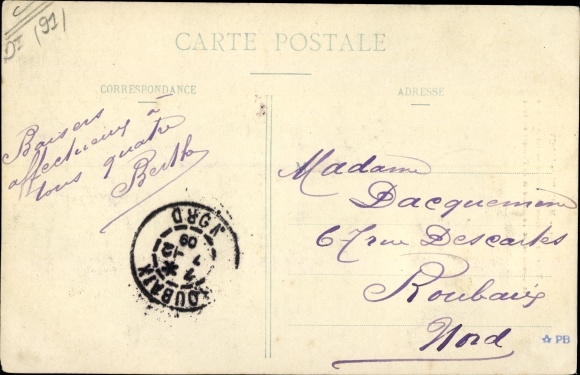 Dt (91)
CARTE POSTALE
CORRESPONDANCE
ADRESSE
Baisers
affectueux à
tous quatre
Berthe
Madame
Dacquemine
67 rue Descartes
Roubaix
Nord
ROUBAIX
NORD
7 -12
09
PB